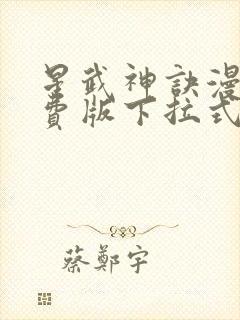 星武神訣漫
費版下拉式
蔡鄭宇